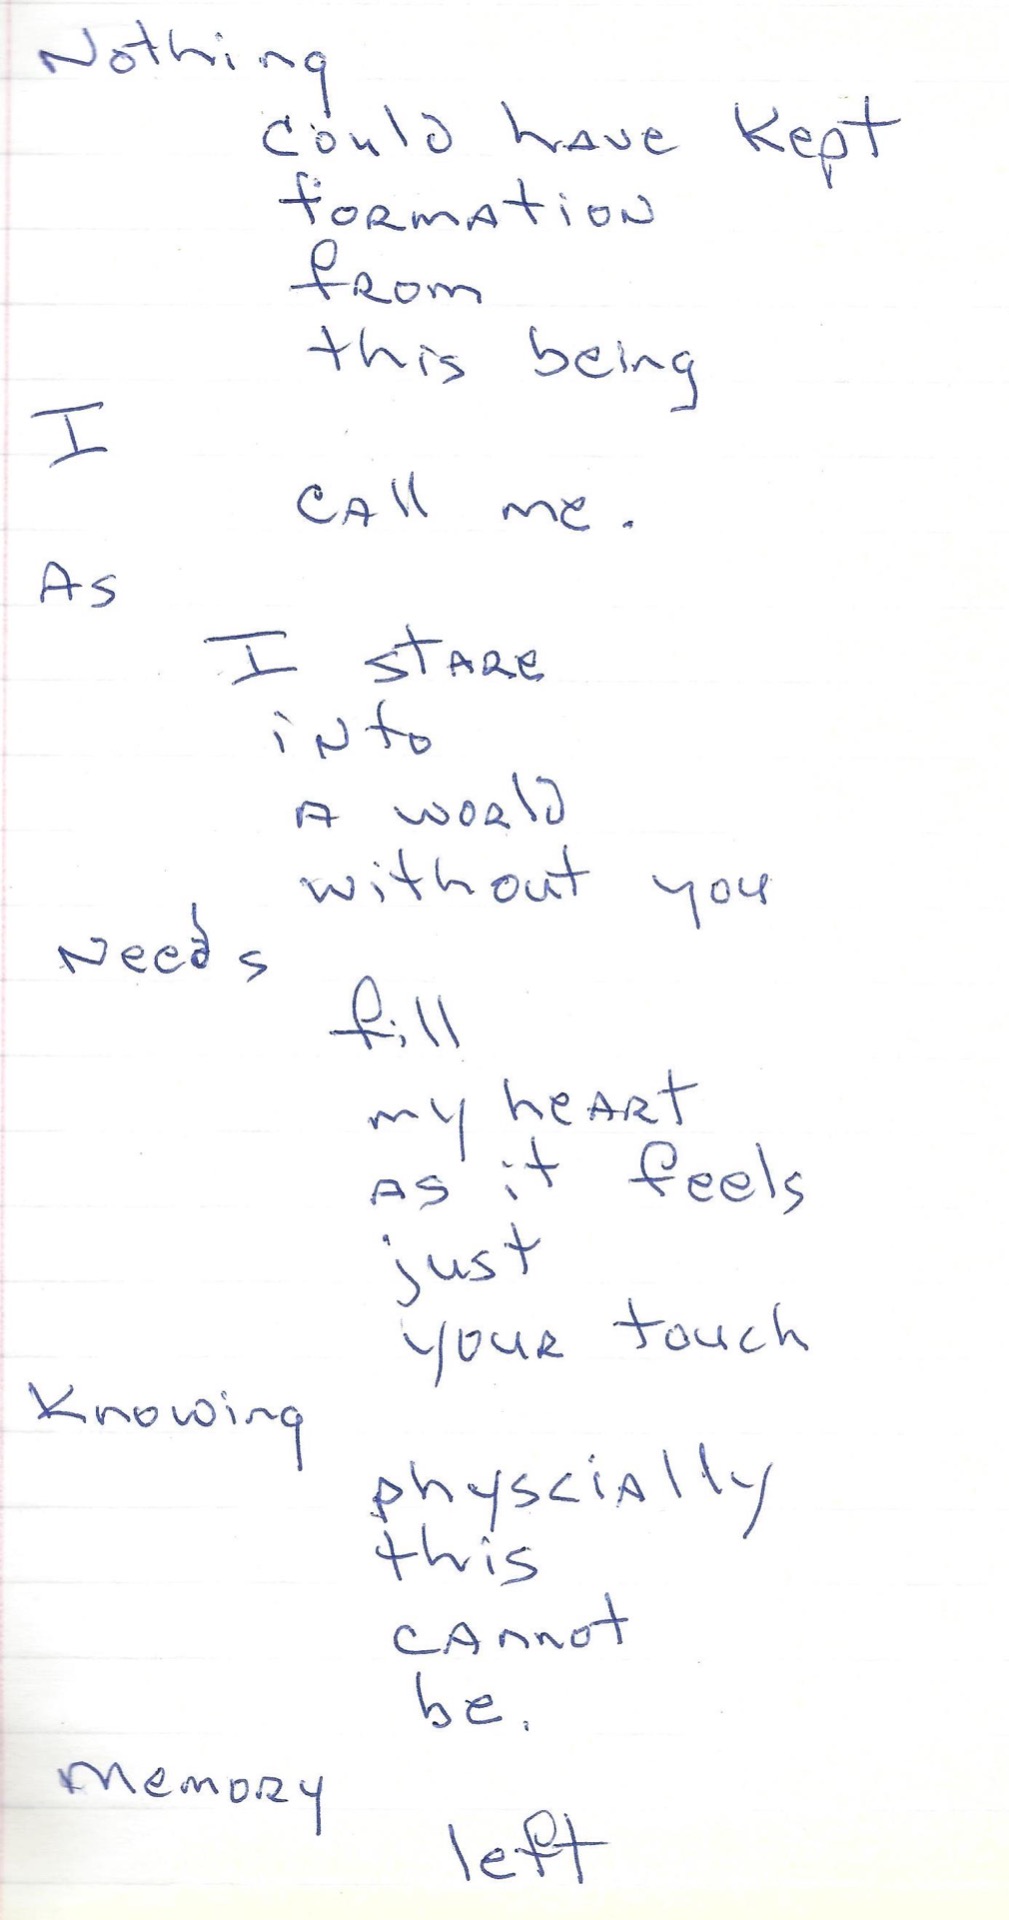 Nothing
could have kept
formation
from
this being
I
call me.
As
I stare
into
a world
without you
Needs
fill
my heart
as it feels
just
your touch
Knowing
physcially
this
cannot
be.
Memory
left